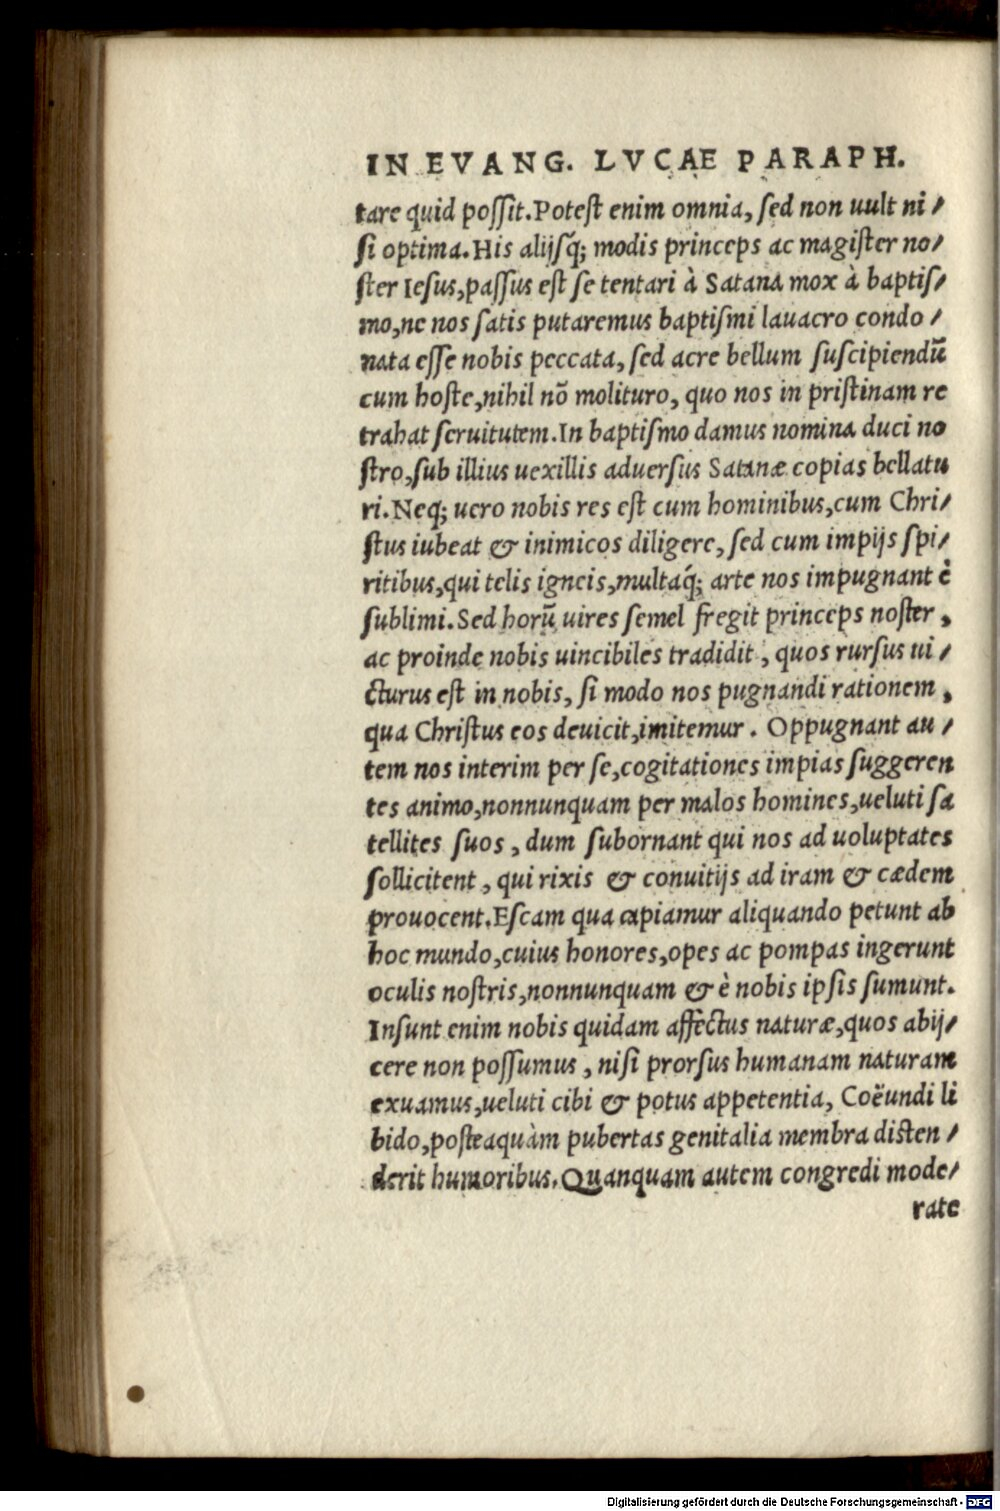 IN EVANG. LVCAE PARAPH.
tare quid poſſit. Poteſt enim omnia, ſed non uult ni/
ſi optima. His alijſq́; modis princeps ac magiſter no/
ſter Ieſus, paſſus eſt ſe tentari à Satana mox à baptiſ/
mo, ne nos ſatis putaremus baptiſmi lauacro condo/
nata eſſe nobis peccata, ſed acre bellum ſuſcipiendũ
cum hoſte, nihil nõ molituro, quo nos in priſtinam re
trahat ſeruitutem. In baptiſmo damus nomina duci no
ſtro, ſub illius uexillis aduerſus Satanæ copias bellatu
ri. Neq; uero nobis res eſt cum hominibus, cum Chri/
ſtus iubeat & inimicos diligere, ſed cum impijs ſpi/
ritibus, qui telis igneis, multaq́; arte nos impugnant è
ſublimi. Sed horũ uires ſemel fregit princeps noſter,
ac proinde nobis uincibiles tradidit, quos rurſus ui/
cturus eſt in nobis, ſi modo nos pugnandi rationem,
qua Chriſtus eos deuicit, imitemur. Oppugnant au/
tem nos interim per ſe, cogitationes impias ſuggeren
tes animo, nonnunquam per malos homines, ueluti ſa
tellites ſuos, dum ſubornant qui nos ad uoluptates
ſollicitent, qui rixis & conuitijs ad iram & cædem
prouocent. Eſcam qua capiamur aliquando petunt ab
hoc mundo, cuius honores, opes ac pompas ingerunt
oculis noſtris, nonnunquam & è nobis ipſis ſumunt.
Inſunt enim nobis quidam affectus naturæ, quos abij/
cere non poſſumus, niſi prorſus humanam naturam
exuamus, ueluti cibi & potus appetentia, Coëundi li
bido, poſteaquàm pubertas genitalia membra diſten/
derit humoribus. Quanquam autem congredi mode/
rate
Digitalisierung gefördert durch die Deutsche Forschungsgemeinschaft - DFG